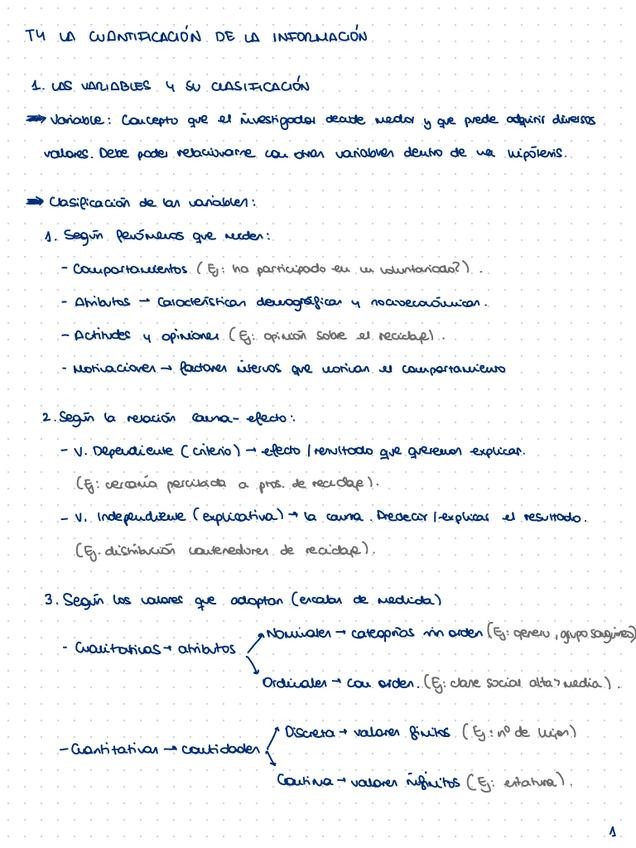 T4 LA CUANTIFICACIÓN DE LA INFORMACIÓN
1. LAS VARIABLES Y SU CLASIFICACIÓN
➡ Variable: Concepto que el investigador decide medir y que puede adquirir diversos
valores. Debe poder relacionarse con otras variables dentro de una hipótesis.
➡ Clasificación de las variables:
1. Según fenómenos que miden:
- Comportamientos (Ej: ha participado en un voluntariado?).
- Atributos → Características demográficas y socioeconómicas.
- Actitudes y opiniones (Ej: opinión sobre el reciclaje).
- Motivaciones → factores internos que motivan el comportamiento
2. Según la relación causa-efecto:
- V. Dependiente (criterio) → efecto / resultado que queremos explicar.
(Ej: cercanía percibida a ptos. de reciclaje).
- V. Independiente (explicativa) → la causa. Predecir / explicar el resultado.
(Ej. distribución contenedores de reciclaje).
3. Según los valores que adoptan (escalas de medida)
- Cualitativas → atributos
Nominales → categorías sin orden (Ej: genero, grupo sanguíneo)
Ordinales → con orden. (Ej: clase social alta > media).
- Cuantitativas → cantidades
Discreta → valores finitos (Ej: nº de hijos)
Continua → valores infinitos (Ej: estatura).
1